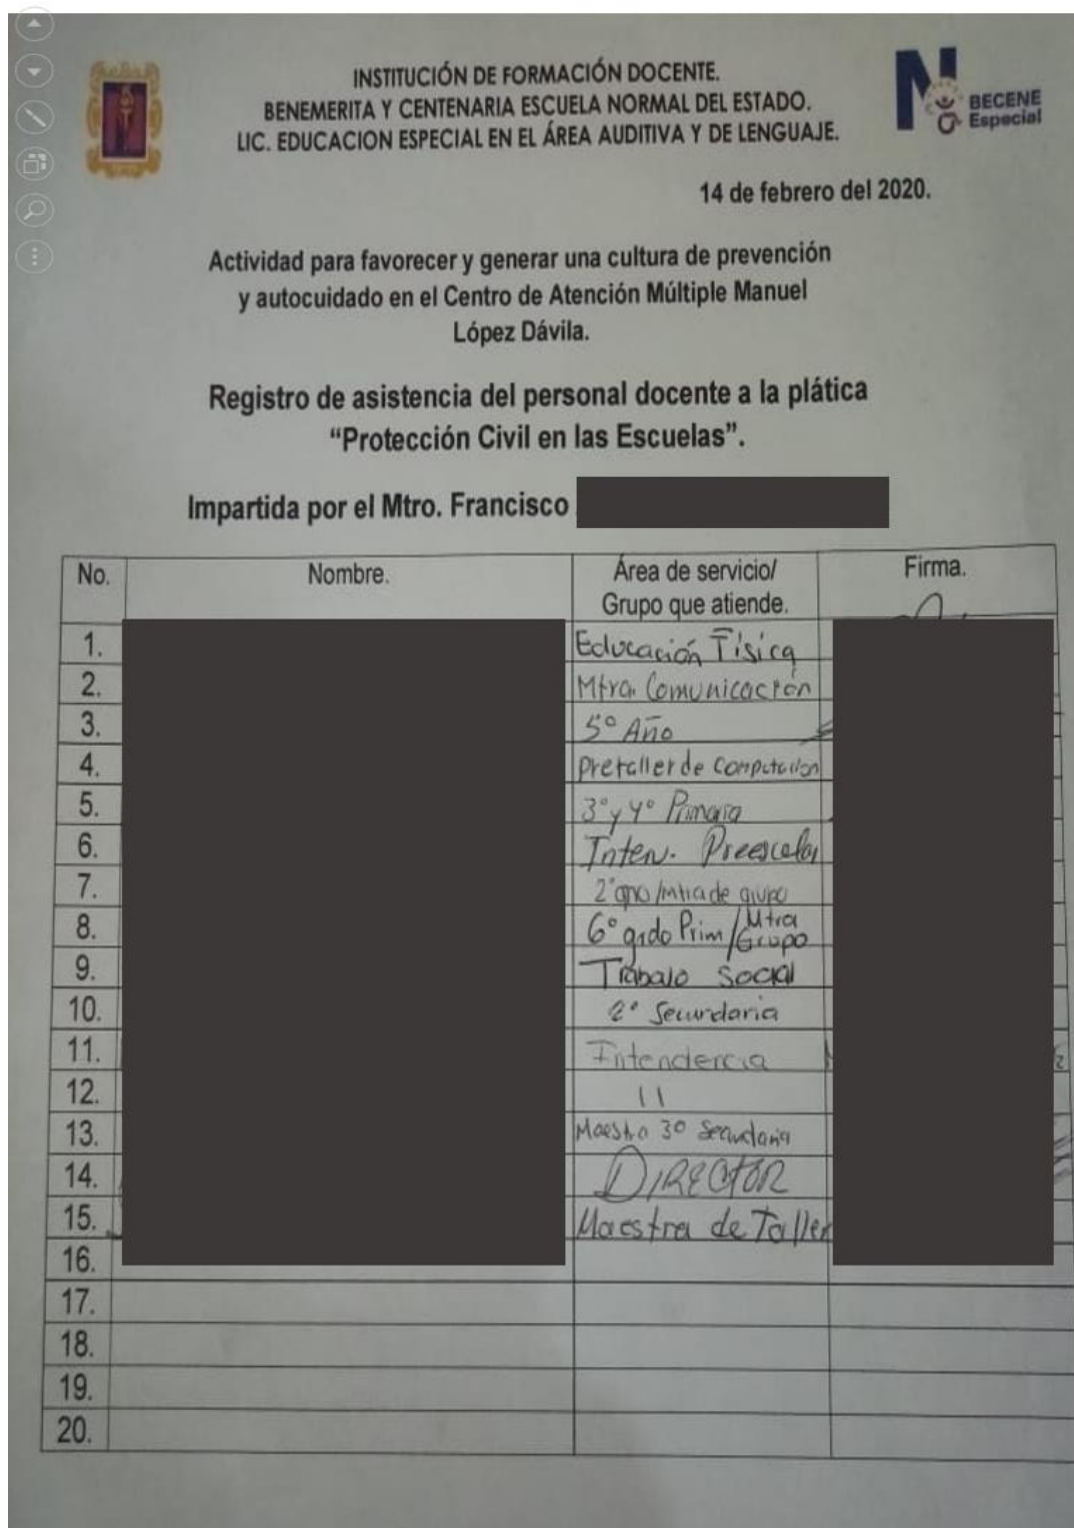 INSTITUCIÓN DE FORMACIÓN DOCENTE.
BENEMERITA Y CENTENARIA ESCUELA NORMAL DEL ESTADO.
LIC. EDUCACION ESPECIAL EN EL ÁREA AUDITIVA Y DE LENGUAJE.
BECENE
Especial
14 de febrero del 2020.
Actividad para favorecer y generar una cultura de prevención
y autocuidado en el Centro de Atención Múltiple Manuel
López Dávila.
Registro de asistencia del personal docente a la plática
“Protección Civil en las Escuelas”.
Impartida por el Mtro. Francisco
No. Nombre. Área de servicio/ Firma.
Grupo que atiende.
1. Educación Física
2. Mtra. Comunicación
3. 5° Año
4. Pretaller de Computación
5. 3° y 4° Primaria
6. Inten. Preescolar
7. 2° de grupo
8. 6° grdo Prim/Mtra Grupo
9. Trabajo Social
10. 2° Secundaria
11. Intendencia
12. 11
13. Maestro 3° Secundaria
14. DIRECTOR
15. Maestra de Taller
16.
17.
18.
19.
20.